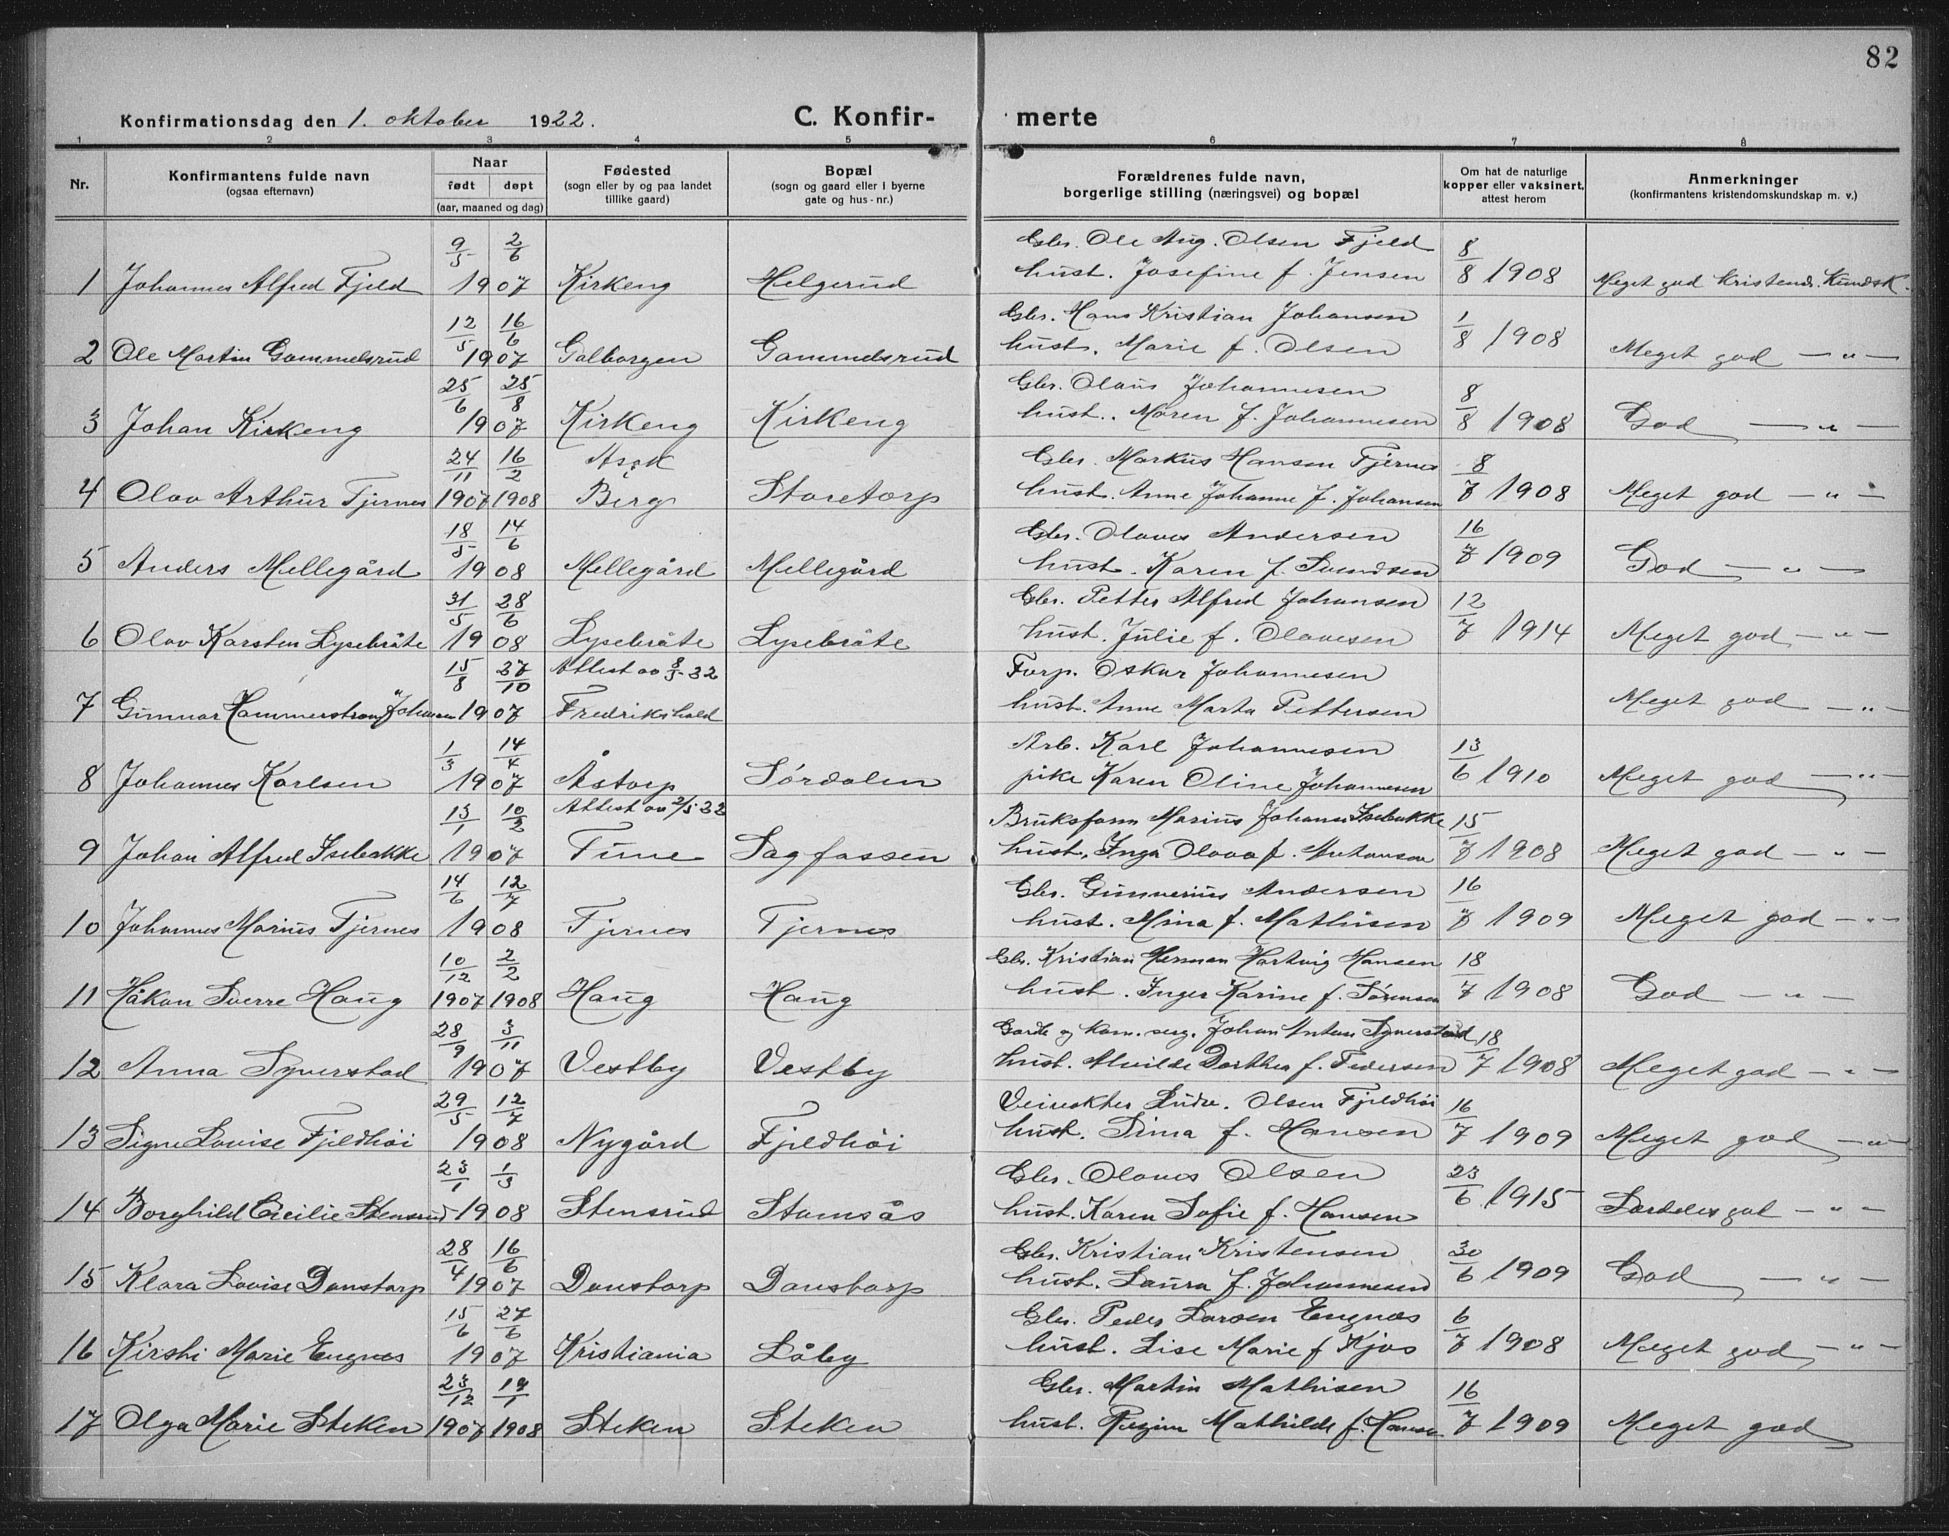 82
Konfirmationsdag den 1. oktober 1922.
C. Konfir- merte
1 2 3 4 5 6 7 8
Nr.
Konfirmantens fulde navn
(ogsaa efternavn)
Naar
født døpt
(aar, maaned og dag)
Fødested
(sogn eller by og paa landet
tillike gaard)
Bopæl
(sogn og gaard eller i byerne
gate og hus-nr.)
Forældrenes fulde navn,
borgerlige stilling (næringsvei) og bopæl
Om hat de naturlige
kopper eller vaksinert,
attest herom
Anmerkninger
(konfirmantens kristendomskundskap m. v.)
9/5 2/6 Gbr. Ole Aug. Olsen Fjeld 8/8
1 Johannes Alfred Fjeld 1907 Kirkeng Helgerud hust. Josefine f. Jensen 1908 Meget god Kristends. Kundsk.
12/5 16/6 Gbr. Hans Kristian Johansen 1/8
2 Ole Martin Gammelsrud 1907 Galborgen Gammelsrud hust. Marie f. Olsen 1908 Meget god — " —
25/6 25/8 Gbr. Olaus Johannesen 8/8
3 Johan Kirkeng 1907 Kirkeng Kirkeng hust. Maren f. Johannesen 1908 God — " —
24/11 16/2 Ask Gbr. Markus Hansen Tjernes 8/7
4 Olav Arthur Tjernes 1907 1908 Berg Storetorp hust. Anne Johanne f. Johansen 1908 Meget god — " —
18/5 14/6 Gbr. Olaves Andersen 16/7
5 Anders Mellegård 1908 Mellegård Mellegård hust. Karen f. Svendsen 1909 God — " —
31/5 28/6 Gbr. Petter Alfred Johansen 12/7
6 Olav Karsten Lysebråte 1908 Lysebråte Lysebråte hust. Julie f. Olavesen 1914 Meget god — " —
15/8 27/10 Attest av 8/3-32 Forp. Oskar Johannesen
7 Gunnar Hammerstrøm Johansen 1907 Fredrikshald hust. Anne Marta Pettersen Meget god — " —
1/3 14/4 Arb. Karl Johannesen 13/6
8 Johannes Karlsen 1907 Åstorp Sørdalen pike Karen Oline Johannesen 1910 Meget god — " —
13/1 10/2 Attest av 2/5-32 Bruksform Marius Johansen Isebakke 15/7
9 Johan Alfred Isebakke 1907 Tune Sagfossen hust. Inga Olava f. Antonsen 1908 Meget god — " —
14/6 12/7 Gbr. Gunnerius Andersen 16/7
10 Johannes Marius Tjernes 1908 Tjernes Tjernes hust. Mina f. Mathisen 1909 Meget god — " —
10/12 2/2 Gbr. Kristian Herman Hartvig Hansen 18/7
11 Håkon Sverre Haug 1907 1908 Haug Haug hust. Inger Karine f. Sørensen 1908 God — " —
28/9 3/11 Garde og Kom. serg. Johan Anton Synerstad 18/7
12 Anna Synerstad 1907 Vestby Vestby hust. Alvilde Dorthea f. Pedersen 1908 Meget god — " —
29/5 12/7 Veivokter Ludv. Olsen Fjeldhøi 16/7
13 Signe Lovise Fjeldhøi 1908 Nygård Fjeldhøi hust. Sina f. Hansen 1909 Meget god — " —
23/1 1/3 Gbr. Olaves Olsen 23/6
14 Borghild Cecilie Stensrud 1908 Stensrud Stomsås hust. Karen Sofie f. Hansen 1915 Særdeles god — " —
28/4 16/6 Gbr. Kristian Kristensen 30/6
15 Klara Lovise Danstorp 1907 Danstorp Danstorp hust. Laura f. Johannesen 1909 God — " —
15/6 27/6 Gbr. Peder Larsen Engnæs 6/7
16 Kirsti Marie Engnæs 1907 Kristiania Låby hust. Lise Marie f. Kjos 1908 Meget god — " —
23/12 19/1 Gbr. Martin Mathisen 16/7
17 Olga Marie Steken 1907 1908 Steken Steken hust. Regine Mathilde f. Hansen 1909 Meget god